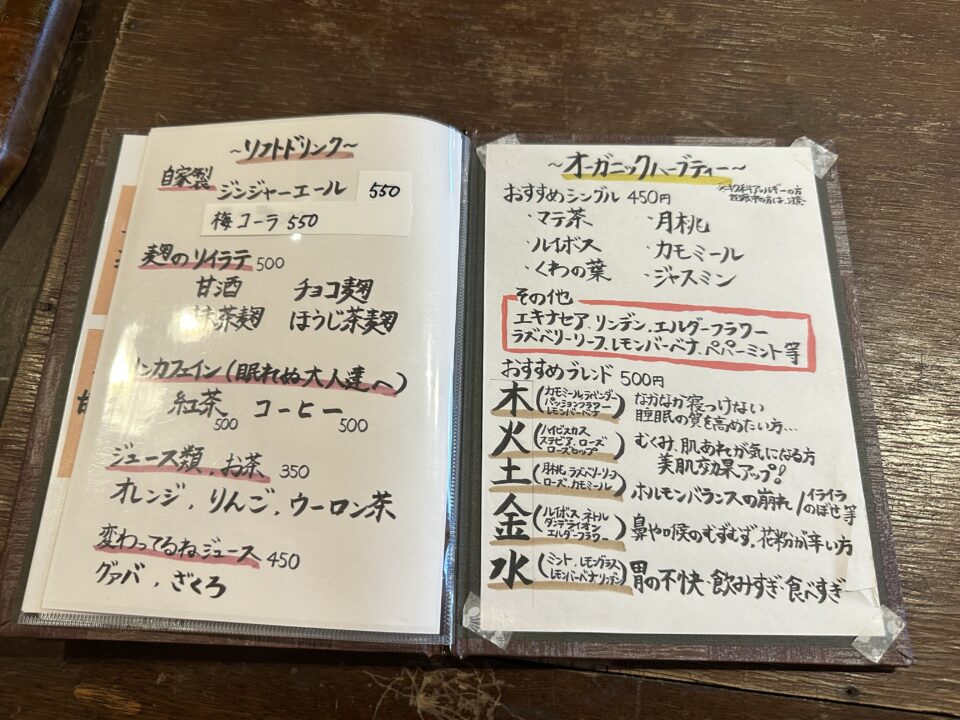 ～ソフトドリンク～
自家製 ジンジャーエール 550
梅コーラ 550
麹のソイラテ 500
甘酒 チョコ麹
抹茶麹 ほうじ茶麹
ノンカフェイン(眠れぬ大人達へ)
紅茶 コーヒー
500 500
ジュース類、お茶 350
オレンジ、りんご、ウーロン茶
変わってるねジュース 450
グァバ、ざくろ
～オーガニックハーブティー～
おすすめシングル 450円
・マテ茶 ・月桃
・ルイボス ・カモミール
・くわの葉 ・ジャスミン
その他
エキナセア、リンデン、エルダーフラワー
ラズベリーリーフ、レモンバーベナ、ペパーミント等
おすすめブレンド 500円
木(カモミール ラベンダー パッションフラワー レモンバーベナ) なかなか寝つけない
睡眠の質を高めたい方…
火(ハイビスカス ステビア、ローズ ローズヒップ) むくみ、肌あれが気になる方
美肌な効果アップ!
土(月桃、ラズベリーリーフ ローズ、カモミール) ホルモンバランスの崩れ/イライラ のぼせ等
金(ルイボス ネトル ダンデライオン エルダーフラワー) 鼻や喉のむずむず、花粉が辛い方
水(ミント、レモングラス レモンバーベナ リンデン) 胃の不快・飲みすぎ・食べすぎ